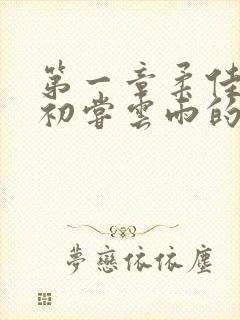 第一章柔佳
初尝雲雨的
夢戀依依塵